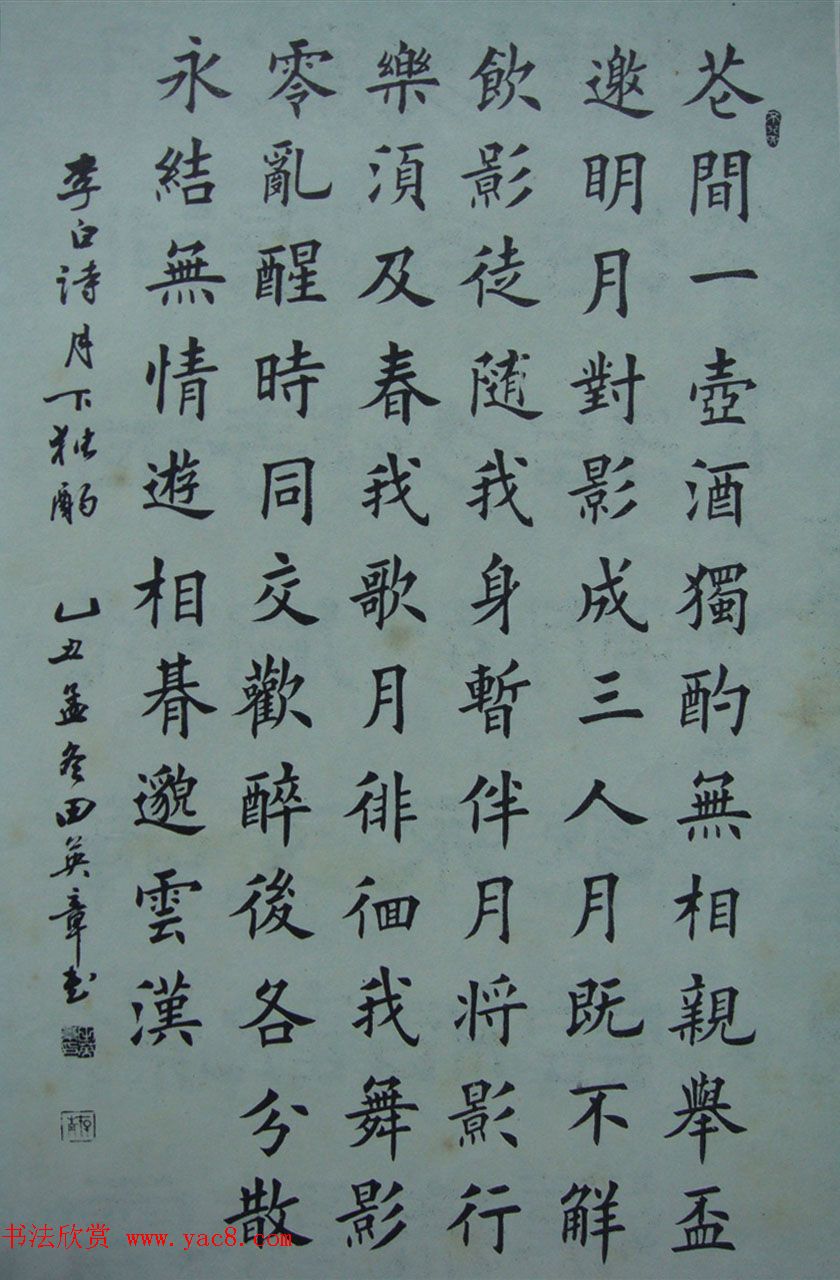 花間一壺酒獨酌無相親舉盃
邀眀月對影成三人月既不觧
飲影徒随我身暫伴月将影行
樂湏及春我歌月徘徊我舞影
零亂醒時同交歡醉後各分散
永結無情遊相朞邈雲漢
李白诗月下独酌 乙丑孟冬田英章书
书法欣赏 www.yac8.com